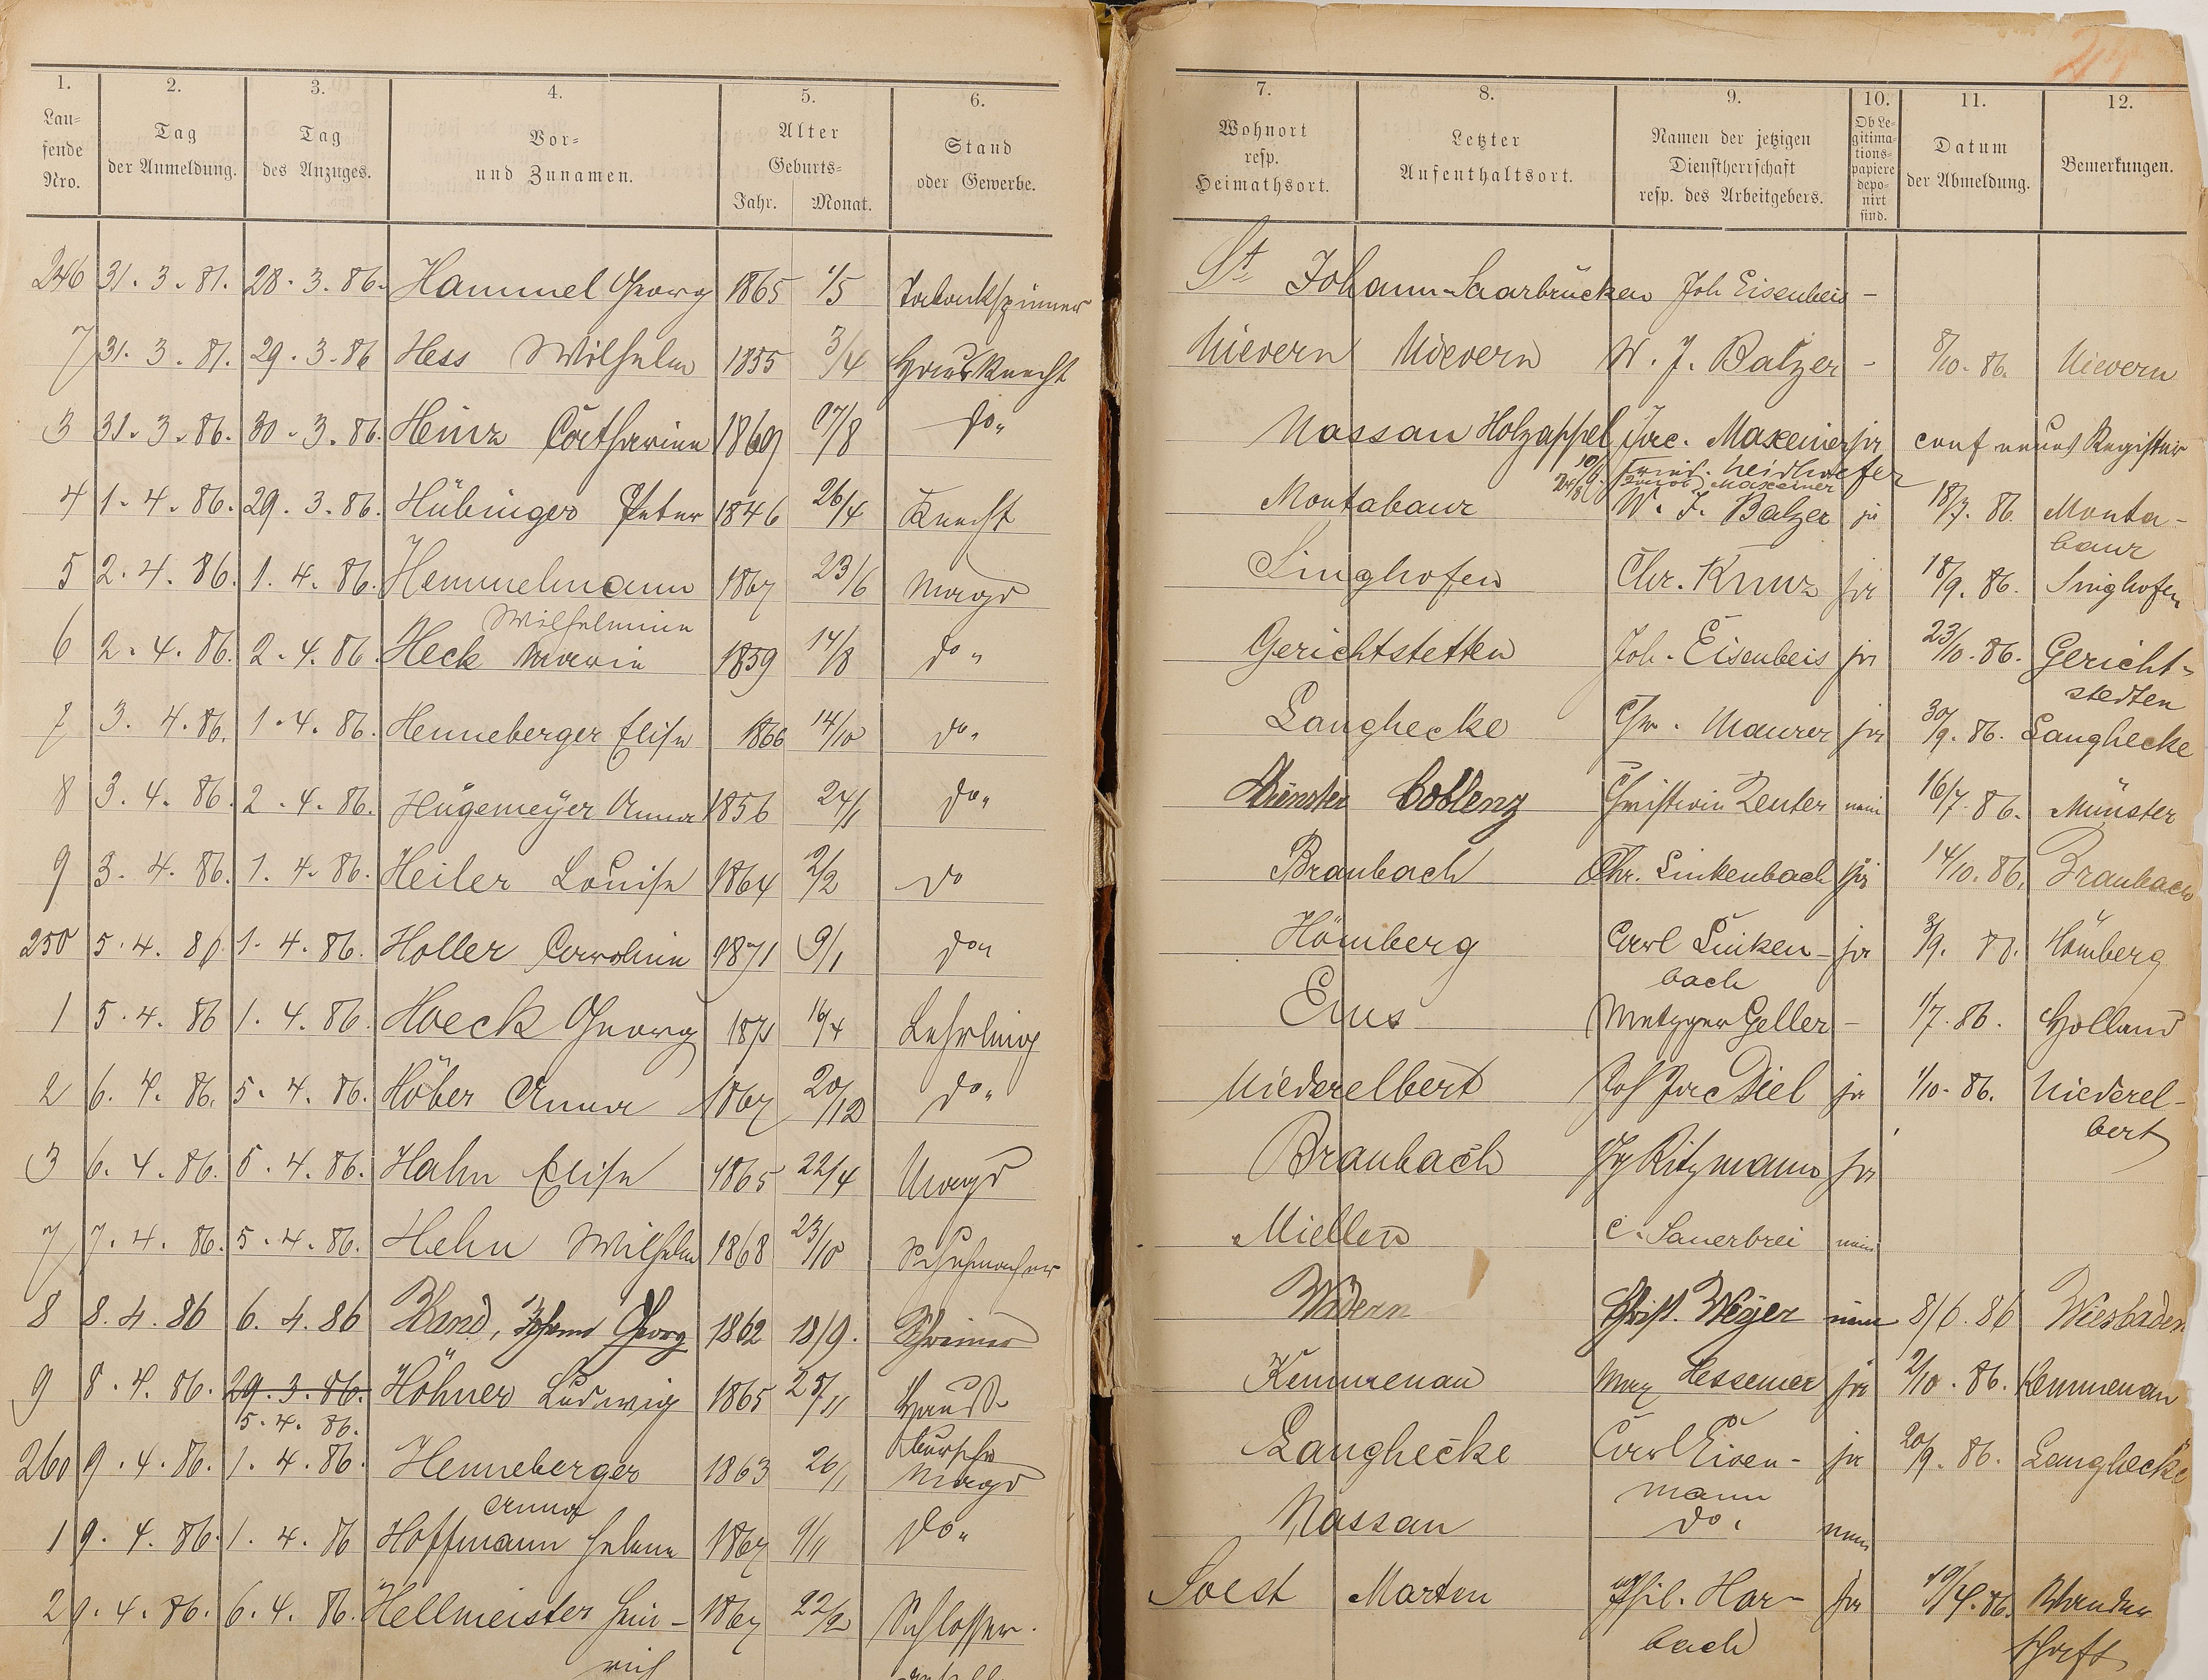 24
1. 2. 3. 4. 5. 6.
Lau-
fende
Nro.
Tag
der Anmeldung.
Tag
des Anzuges.
Vor-
und Zunamen.
Alter
Geburts-
Jahr. Monat.
Stand
oder Gewerbe.
7. 8. 9. 10. 11. 12.
Wohnort
resp.
Heimathsort.
Letzter
Aufenthaltsort.
Namen der jetzigen
Dienstherrschaft
resp. des Arbeitgebers.
Ob Le-
gitima-
tions-
papiere
depo-
nirt
sind.
Datum
der Abmeldung.
Bemerkungen.
246 31. 3. 81. 28. 3. 86. Hammel Georg 1865 1/5 Tabackspinner St Johann-Saarbrücken Joh Eisenbeis -
7 31. 3. 81. 29. 3. 86 Hess Wilhelm 1855 3/4 Hausknecht Nievern Nievern W. J. Balzer - 8/10. 86. Nievern
3 31. 3. 86. 30. 3. 86. Heinz Catharina 1869 17/8 do. Nassau Holzappel Jac. Maxeiner ja conf neues Register
4 1. 4. 86. 29. 3. 86. Hübinger Peter 1846 26/4 Knecht Montabaur W. J. Balzer ja 18/7. 86. Monta-
baur
5 2. 4. 86. 1. 4. 86. Hemmelmann 1867 23/6 Magd Singhofen Chr. Kunz ja 18/9. 86. Singhofen
Wilhelmine
6 2. 4. 86. 2. 4. 86. Heck Maria 1859 14/8 do. Gerichtstetten Joh. Eisenbeis ja 23/10. 86. Gericht-
stedten
7 3. 4. 86. 1. 4. 86. Henneberger Elise 1866 14/10 do. Langhecke Chr. Maurer ja 30/9. 86. Langhecke
8 3. 4. 86. 2. 4. 86. Hügemeyer Anna 1856 24/1 do. Münster Coblenz Christian Zenter nein 16/7. 86. Münster
9 3. 4. 86. 1. 4. 86. Heiler Louise 1864 2/2 do Braubach Chr. Linkenbach ja 14/10. 86. Braubach
250 5. 4. 86 1. 4. 86. Holler Caroline 1871 9/1 do. Hömberg Carl Linken- ja 3/9. 86. Hömberg
bach
1 5. 4. 86 1. 4. 86. Hoeck Georg 1871 16/4 Lehrling Ems Metzger Geller - 1/7. 86. Holland
2 6. 4. 86. 5. 4. 86. Höber Anna 1867 20/12 do. Niederelbert Joh Jac Diel ja 1/10. 86. Niederel-
bert
3 6. 4. 86. 5. 4. 86. Hahn Elise 1865 22/4 Magd Braubach Ritzmann ja
7 7. 4. 86. 5. 4. 86. Hehn Wilhelm 1868 23/10 Schuhmacher Miellen C. Sauerbrei nein
8 8. 4. 86 6. 4. 86 Johann Georg 1862 18/9. Schreiner Wadern Christ. Weyer nein 8/6. 86 Wiesbaden
9 8. 4. 86. 29. 3. 86. Höhner Ludwig 1865 25/11 Haus- Kemmenau Max Hessemer ja 2/10. 86. Kemmenau
5. 4. 86. bursche
260 9. 4. 86. 1. 4. 86. Henneberger 1863 26/1 Magd Langhecke Carl Eisen- ja 20/9. 86. Langhecke
Anna mann
1 9. 4. 86. 1. 4. 86 Hoffmann Helene 1867 9/11 do. Nassau do. nein
2 9. 4. 86. 6. 4. 86. Hellmeister Hein- 1867 22/2 Schlosser Soest Marten Phil. Har- ja 19/4. 86. Wander
rich bach schaft